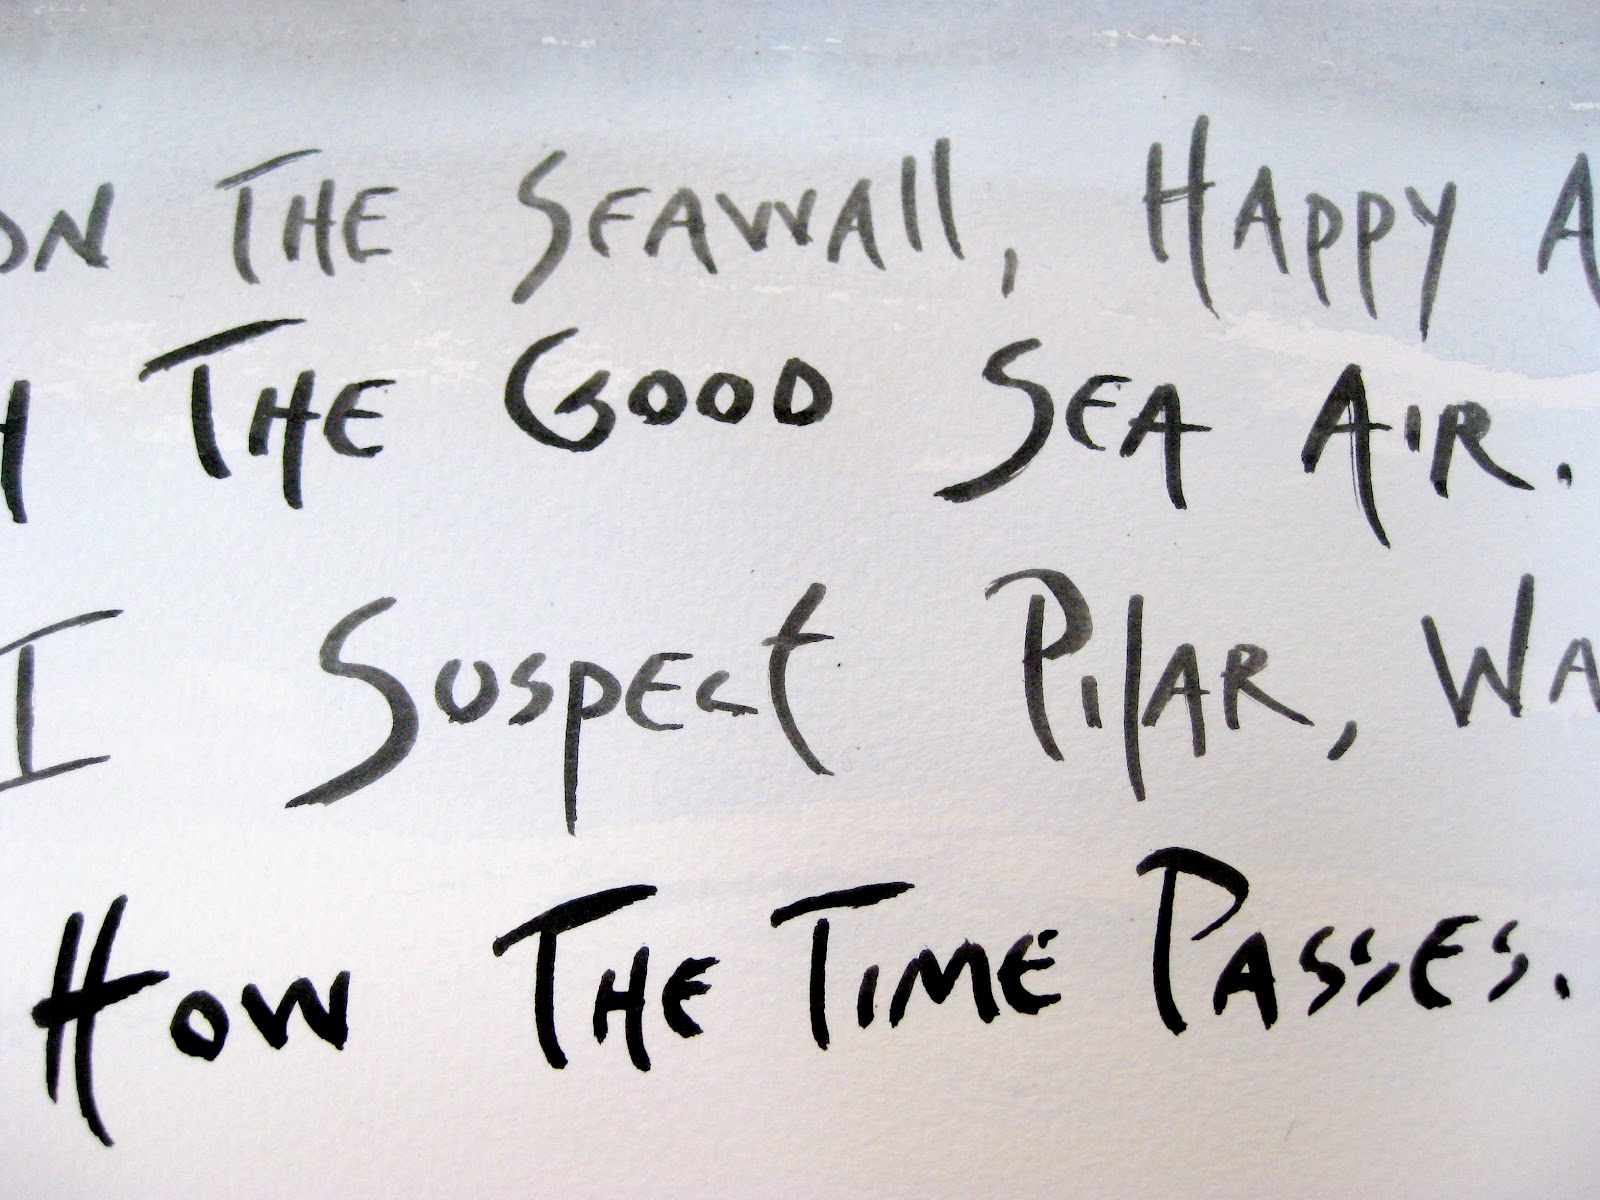 ON THE SEAWALL, HAPPY A
THE GOOD SEA AIR.
I SUSPECT PILAR, WA
HOW THE TIME PASSES.